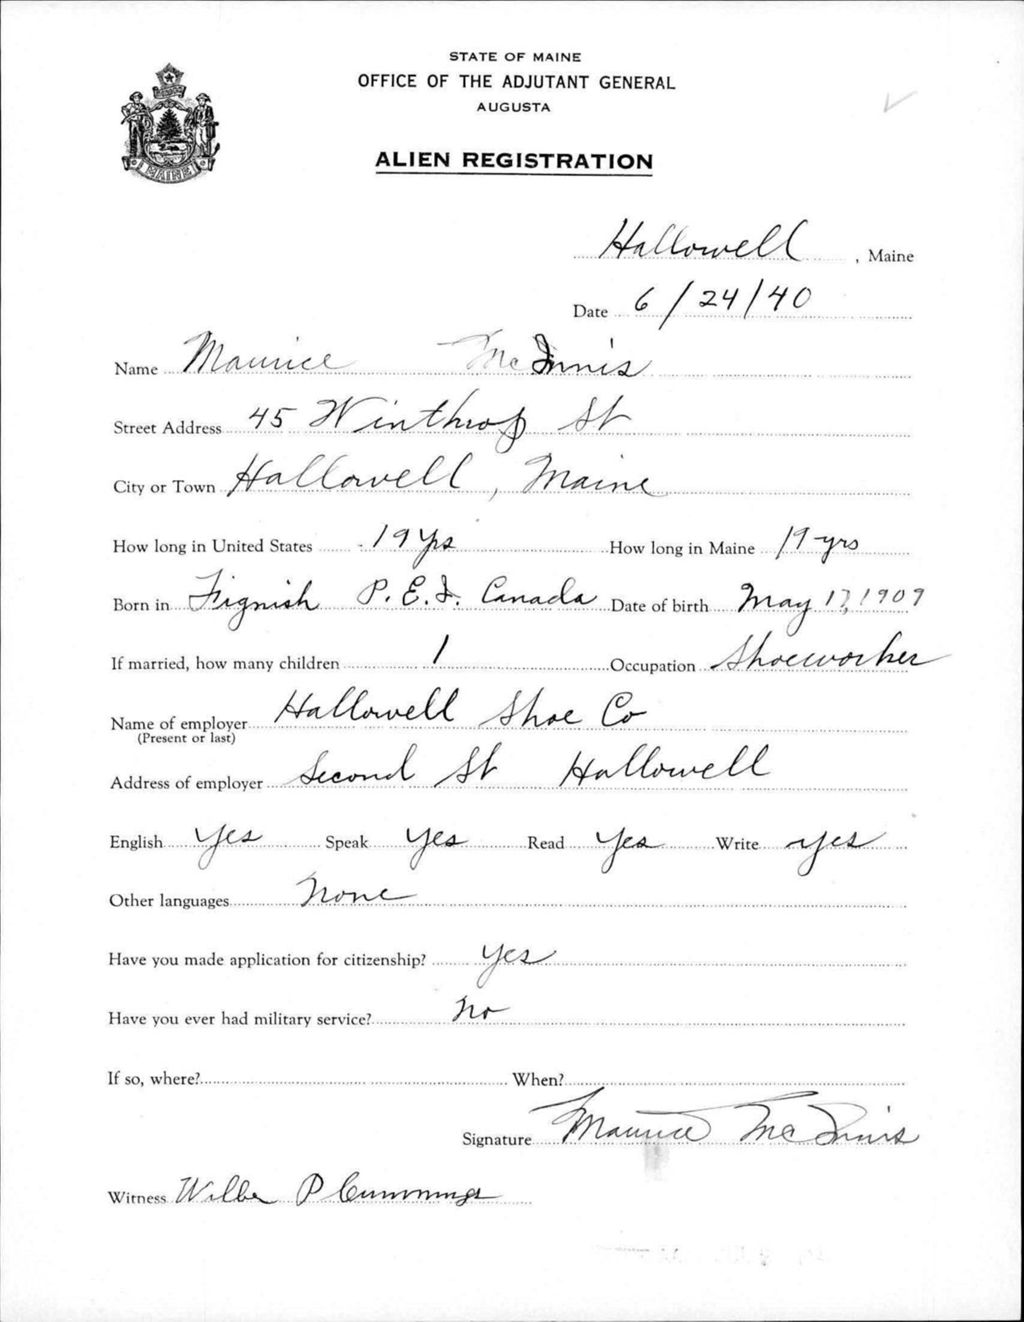 STATE OF MAINE
OFFICE OF THE ADJUTANT GENERAL
AUGUSTA
ALIEN REGISTRATION
MAINE
Hallowell, Maine
Date 6/24/40
Name Maurice McInnis
Street Address 45 Winthrop St
City or Town Hallowell, Maine
How long in United States 19 Yrs How long in Maine 19 yrs
Born in Tignish P.E.I. Canada Date of birth May 17, 1909
If married, how many children 1 Occupation Shoeworker
Name of employer Hallowell Shoe Co
(Present or last)
Address of employer Second St Hallowell
English Yes Speak Yes Read Yes Write Yes
Other languages None
Have you made application for citizenship? Yes
Have you ever had military service? No
If so, where? When?
Signature Maurice McInnis
Witness P Cummings